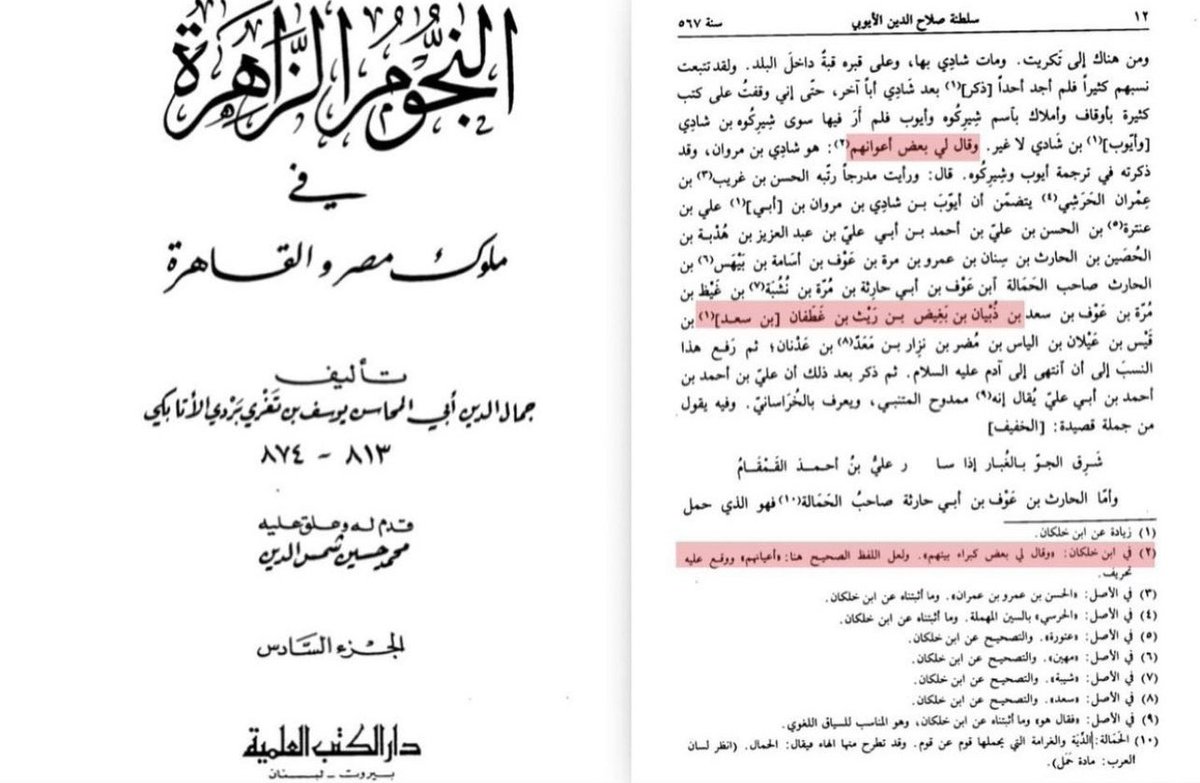 النجوم الزاهرة
في
ملوك مصر والقاهرة
تأليف
جمال الدين أبي المحاسن يوسف بن تغري بردي الأتابكي
٨١٣ - ٨٧٤
قدم له وعلق عليه
محمد حسين شمس الدين
الجزء السادس
دار الكتب العلمية
بيروت - لبنان
١٢ سلطنة صلاح الدين الأيوبي سنة ٥٦٧
ومن هناك إلى تَكريت. ومات شادِي بها، وعلى قبره قبةٌ داخلَ البلد. ولقد تتبعت
نسبهم كثيراً فلم أجد أحداً [ذكر](١) بعد شَادِي أباً آخر، حتّى إني وقفتُ على كتب
كثيرة بأوقاف وأملاك بآسم شِيرِكُوه وأيوب فلم أرَ فيها سوى شِيرِكُوه بن شادِي
[وأيّوب](١) بن شَادي لا غير. وقال لي بعض أعوانهم(٢): هو شادِي بن مروان، وقد
ذكرته في ترجمة أيوب وشِيرِكُوه. قال: ورأيت مدرجاً رتّبه الحسن بن غريب(٣) بن
عِمْران الحَرَشِي(٤) يتضمّن أن أيوّبَ بن شادِي بن مروان بن [أبي](١) علي بن
عنترة(٥) بن الحسن بن عليّ بن أحمد بن أبي عليّ بن عبد العزيز بن هُدْبة بن
الحُصَين بن الحارث بن سِنان بن عمرو بن مرة بن عَوْف بن أسَامة بن بَيْهَس(٦) بن
الحارث صاحب الحَمَالة آبن عَوْف بن أبي حارِثة بن مُرّة بن نُشْبَة(٧) بن غَيْظ بن
مُرّة بن عَوْف بن سعد بن ذُبْيان بن بَغِيض بن رَيْث بن غَطَفان [بن سعد](١) بن
قَيْس بن عَيْلان بن الياس بن مُضر بن نِزار بن مَعَدّ(٨) بن عَدْنان؛ ثم رَفع هذا
النسبَ إلى أن أنتهى إلى آدم عليه السلام. ثم ذكر بعد ذلك أن عليّ بن أحمد بن
أحمد بن أبي عليّ يُقال إنه(٩) ممدوح المتنبي، ويعرف بالخُرَاسانيّ. وفيه يقول
من جملة قصيدة: [الخفيف]
شَرِق الجوّ بالغُبار إذا سا ر عليُّ بنُ أحمدَ القَمْقَامُ
وأمّا الحارث بن عَوْف بن أبي حارثة صاحبُ الحَمَالة(١٠) فهو الذي حمل
(١) زيادة عن ابن خلكان.
(٢) في ابن خلكان: «وقال لي بعض كبراء بيتهم». ولعل اللفظ الصحيح هنا: «أعيانهم» ووقع عليه
تحريف.
(٣) في الأصل: «الحسن بن عمرو بن عمران». وما أثبتناه عن ابن خلكان.
(٤) في الأصل: «الحرسي» بالسين المهملة. وما أثبتناه عن ابن خلكان.
(٥) في الأصل: «عنورة». والتصحيح عن ابن خلكان.
(٦) في الأصل: «مهين». والتصحيح عن ابن خلكان.
(٧) في الأصل: «شيبة». والتصحيح عن ابن خلكان.
(٨) في الأصل: «سعد». والتصحيح عن ابن خلكان.
(٩) في الأصل: «فقال هو» وما أثبتناه عن ابن خلكان، وهو المناسب للسياق اللغوي.
(١٠) الحَمَالة: الدِّيَة والغرامة التي يحملها قوم عن قوم. وقد تطرح منها الهاء فيقال: الحمال. (انظر لسان
العرب: مادة حَمَل).